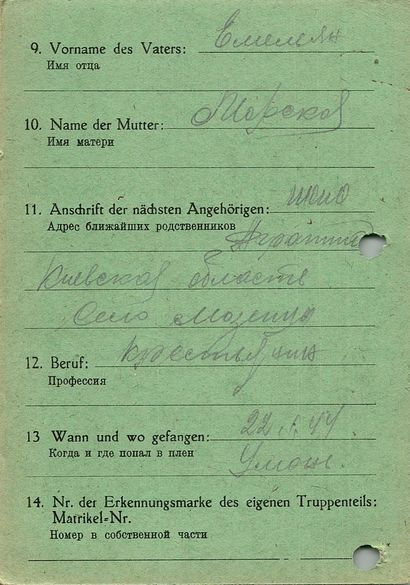 9. Vorname des Vaters: Емельян
Имя отца
10. Name der Mutter: Морская
Имя матери
11. Anschrift der nächsten Angehörigen:
Адрес ближайших родственников
Киевская область
Село
12. Beruf: крестьянин
Профессия
13 Wann und wo gefangen: 22.1.44
Когда и где попал в плен Умань.
14. Nr. der Erkennungsmarke des eigenen Truppenteils:
Matrikel-Nr.
Номер в собственной части